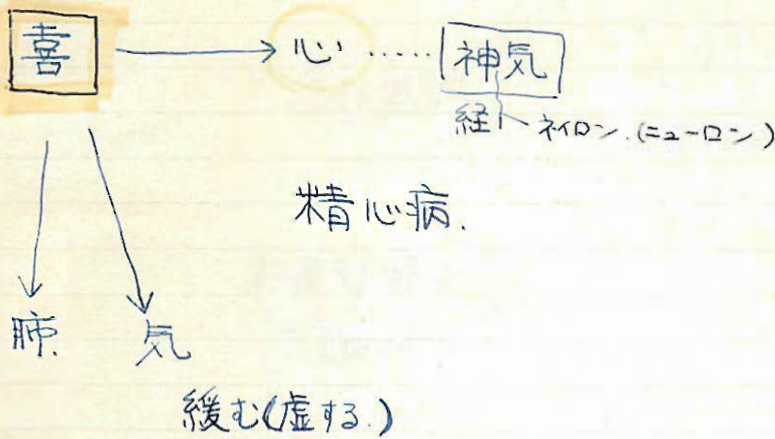 喜 → 心 ····· 神気
経 ネイロン.(ニューロン)
精心病.
肺. 気
緩む(虚する.)